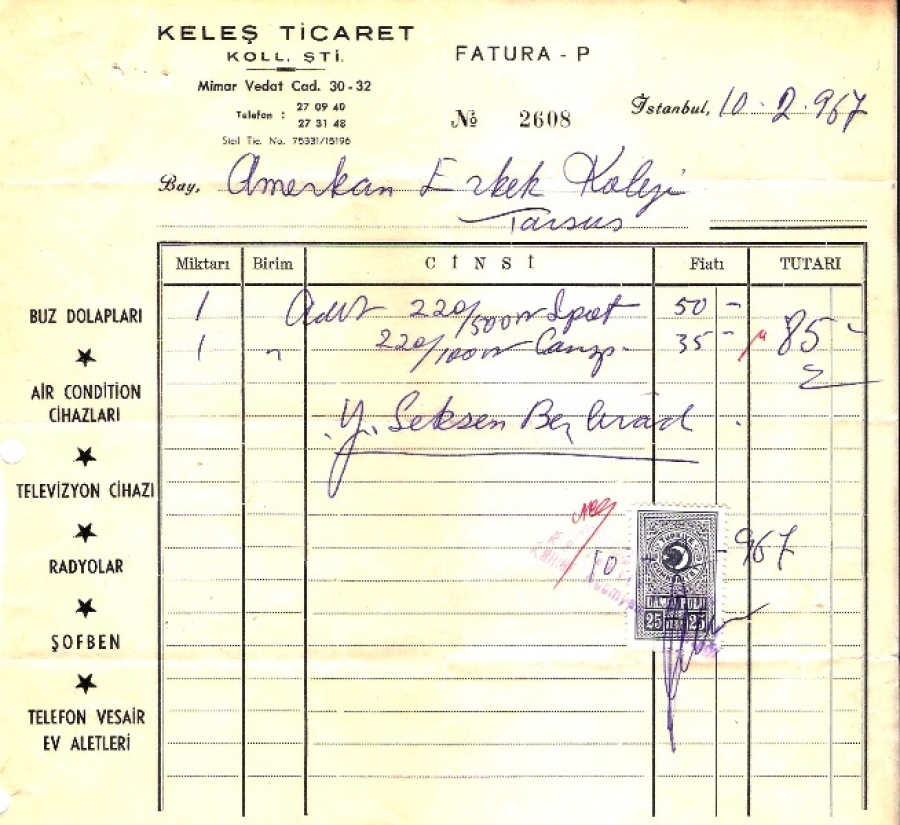 KELEŞ TİCARET
KOLL. ŞTİ.
Mimar Vedat Cad. 30-32
Telefon : 27 09 40
27 31 48
Sicil Tic. No. 75331/15196
FATURA - P
№ 2608
İstanbul, 10 - 2 - 967
Bay, Amerkan Erkek Koleji
Tarsus
Miktarı Birim CİNSİ Fiatı TUTARI
1 Adet 220/500W Spot 50 -
1 " 220/100W 35 - 85 -
Y. Seksen Beş lirad
BUZ DOLAPLARI
AİR CONDİTİON
CİHAZLARI
TELEVİZYON CİHAZI
RADYOLAR
ŞOFBEN
TELEFON VESAİR
EV ALETLERİ
10 - 967
DAMGA PULU
25 25